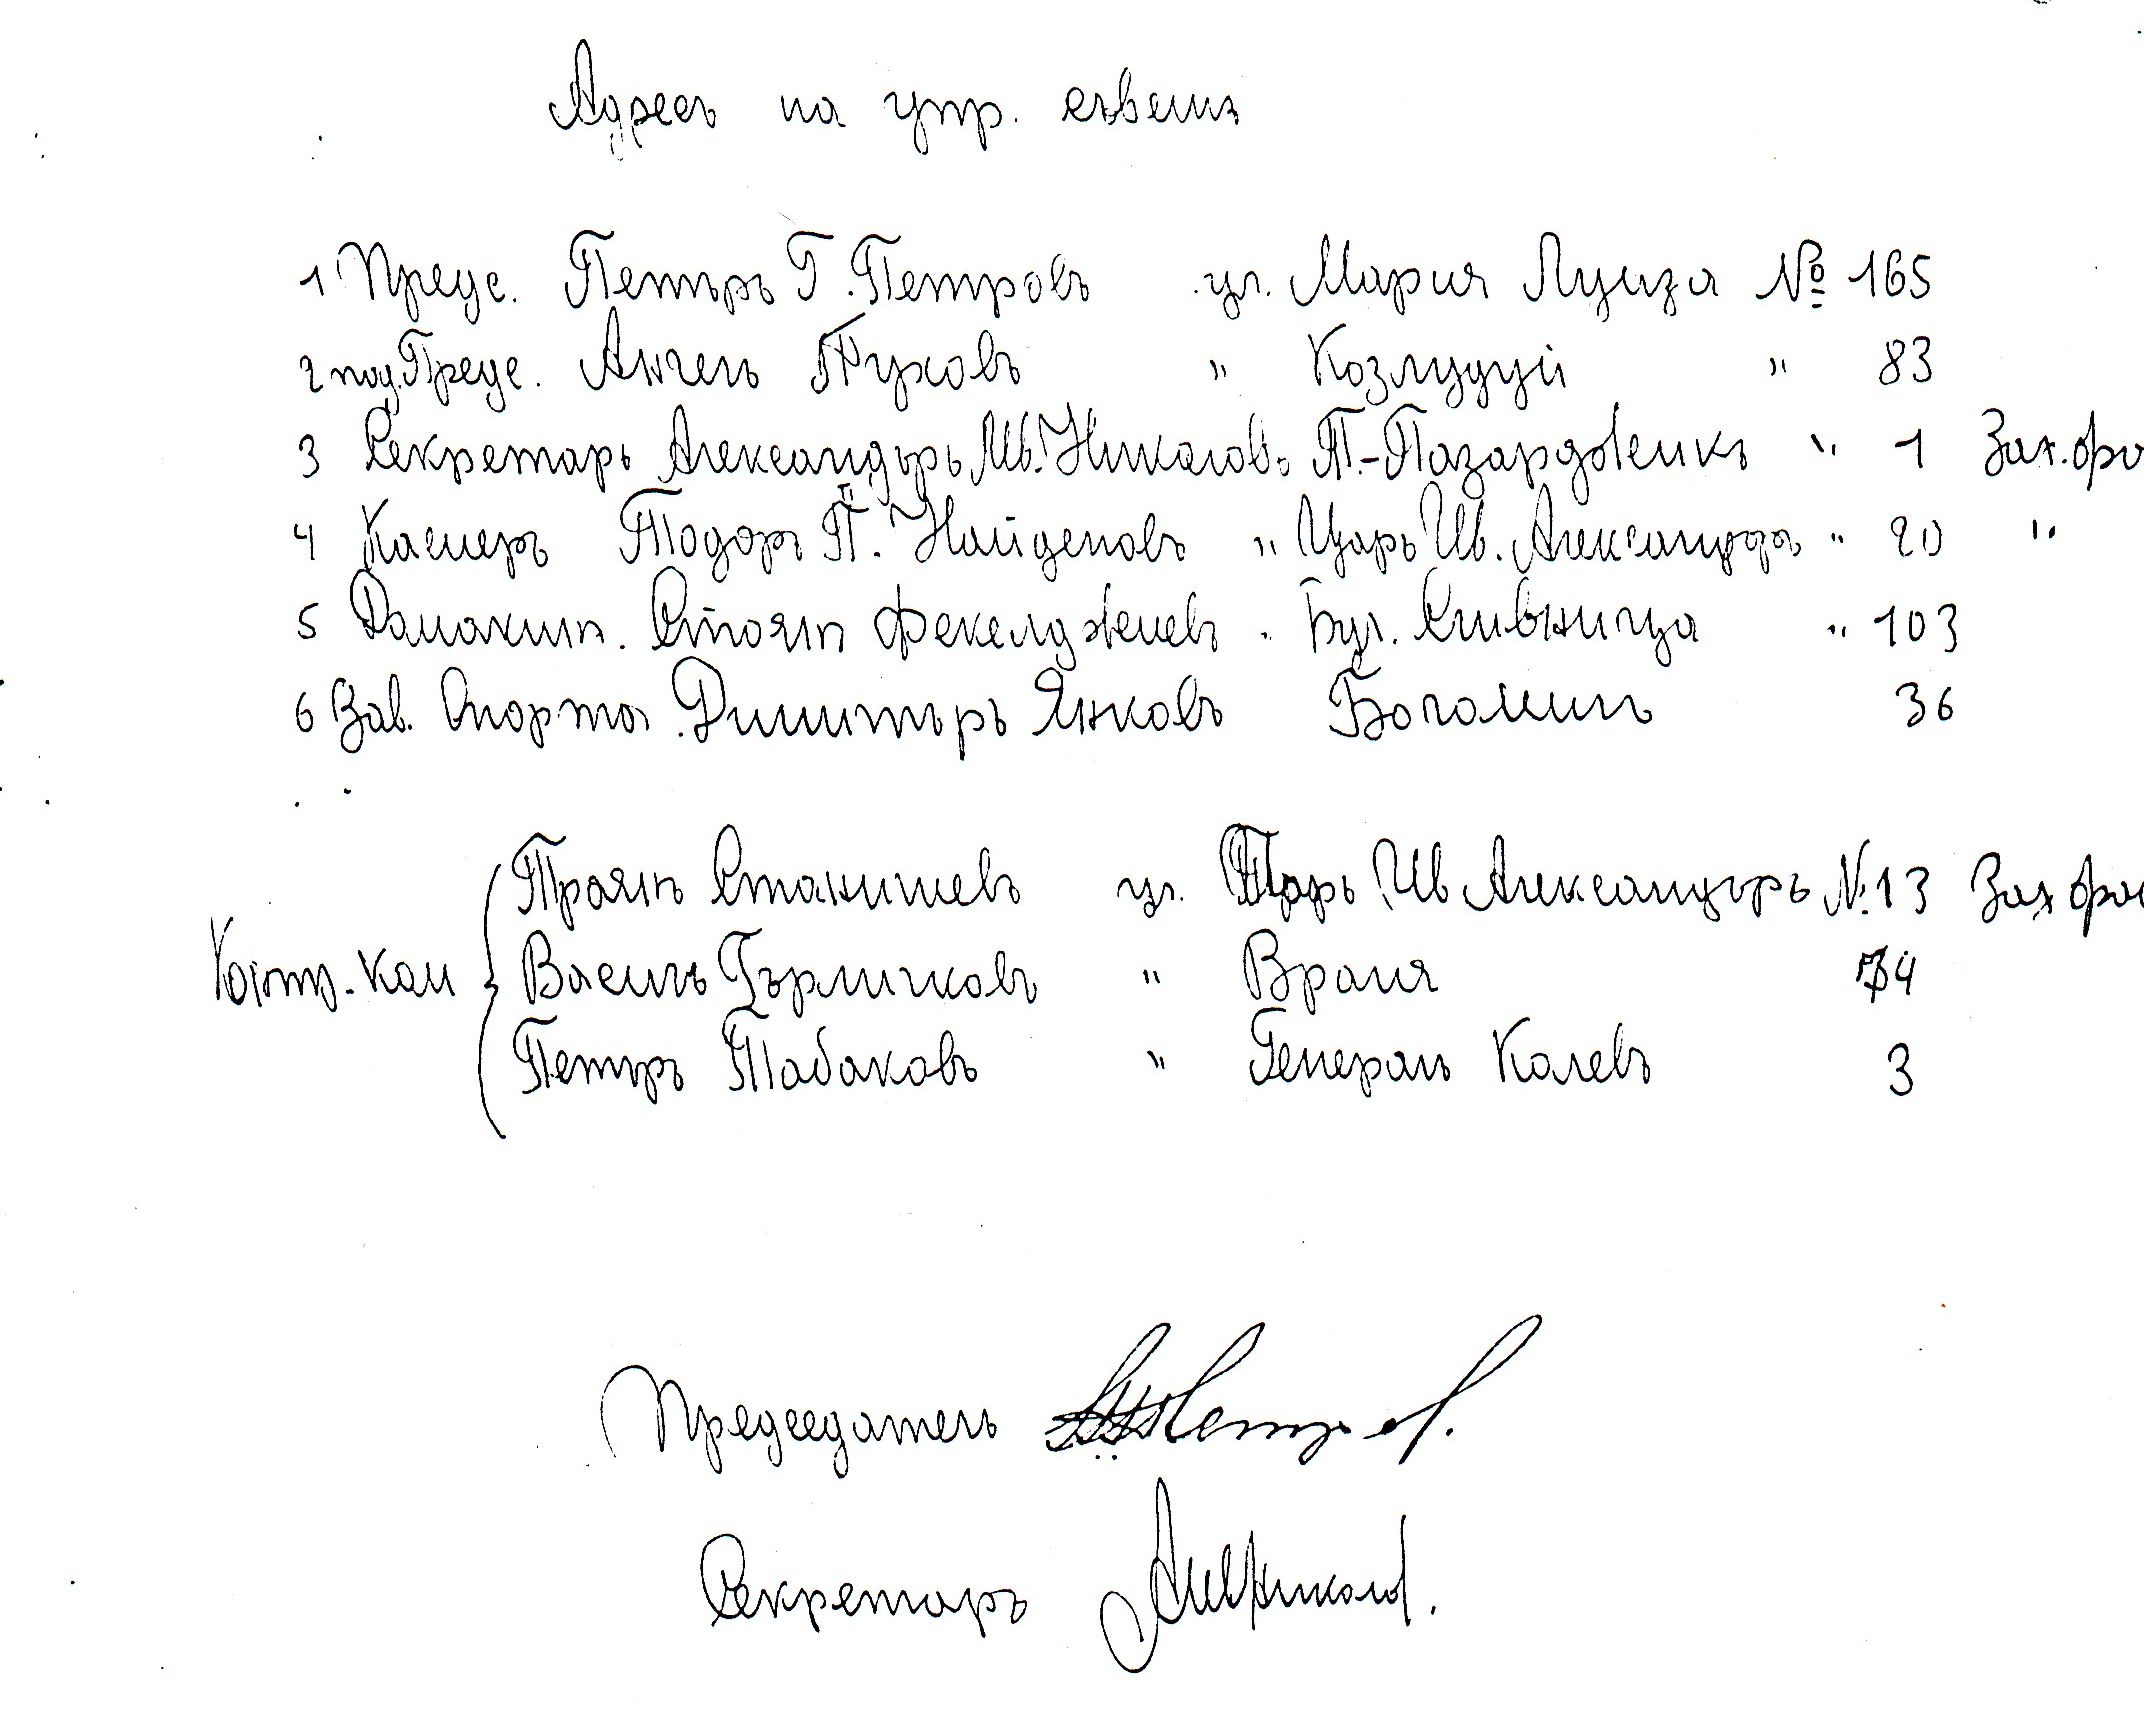 Адресъ на упр. съветъ
1 Предс. Петъръ Г. Петровъ ул. Мария Луиза № 165
2 под.Предс. Ангелъ Пуховъ " Козлудуй " 83
3 Секретарь Александъръ Ив. Николовъ Т.-Пазарджикъ " 1 Зах. фа
4 Касиеръ Тодоръ П. Найденовъ " Царь Ив. Александръ " 20 "
5 Домакин. Стоянъ Фекелджиевъ " Бул. Сливница " 103
6 Зав. Спорта. Димитъръ Янковъ Богомилъ 36
Контр.-ком Траянъ Станишевъ ул. Царь Ив Александъръ № 13 Зах фа
Василъ Гърличковъ " Враня 74
Петъръ Табаковъ " Генералъ Колевъ 3
Председателъ Петров.
Секретаръ А Ив Николов.